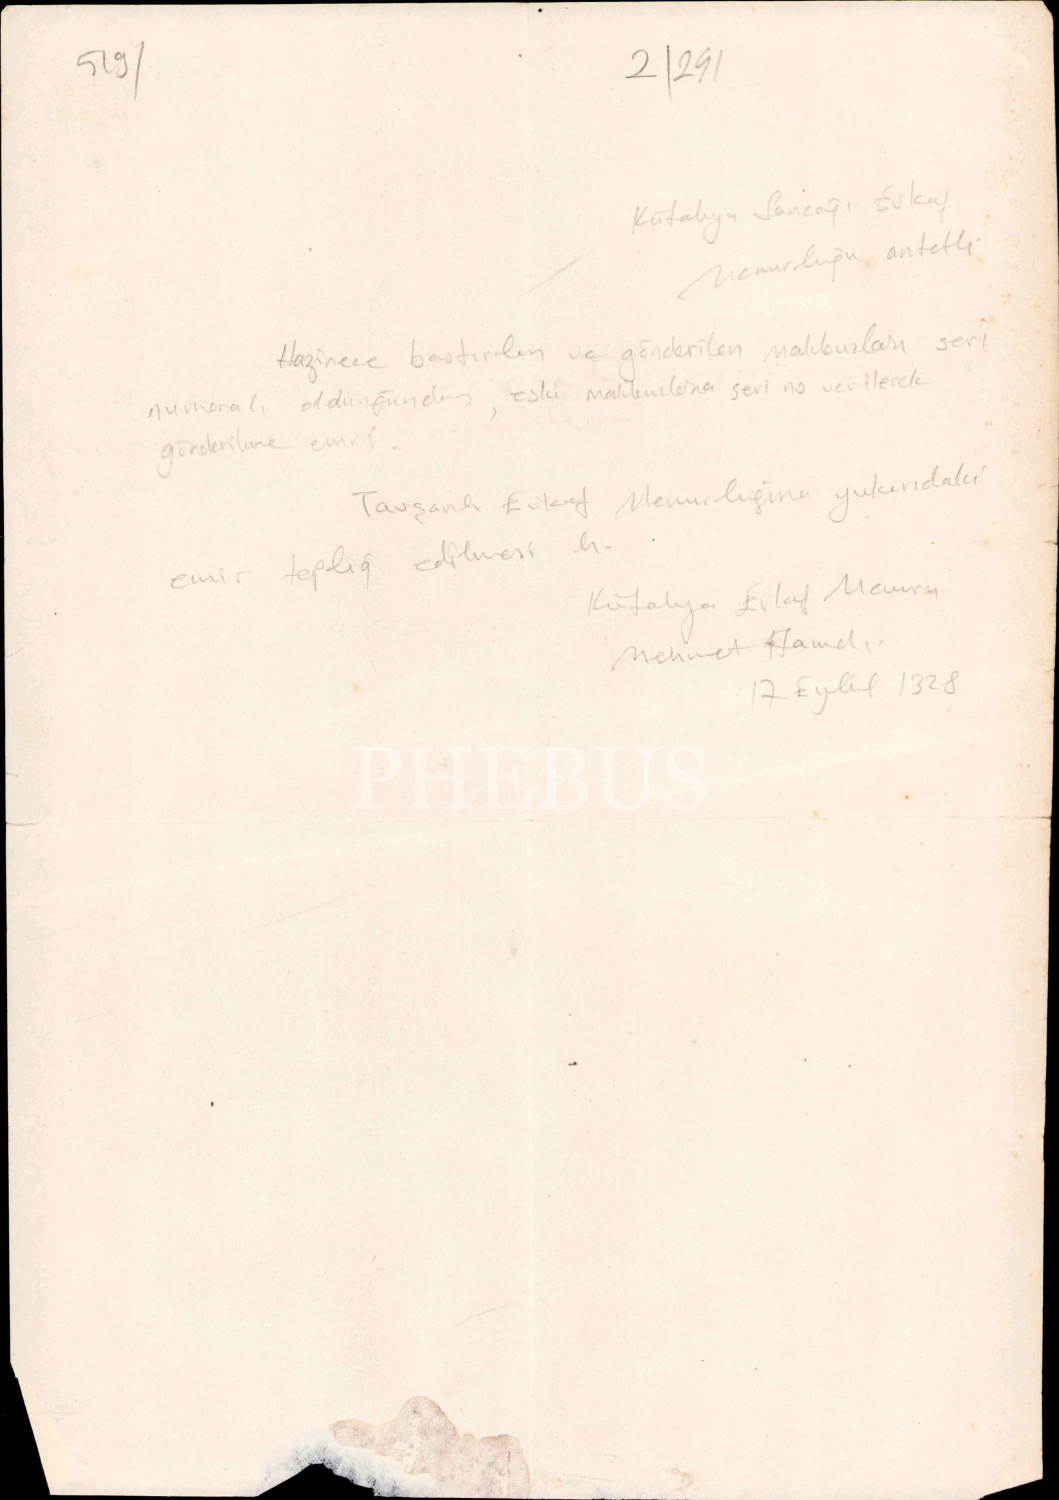 519/ 2/291
Kütahya Sancağı Evkaf
Memurluğu antetli
Hazinece bastırılan ve gönderilen makbuzları seri
numaralı olduğundan, eski makbuzlara seri no verilerek
gönderilme emri.
Tavşanlı Evkaf Memurluğuna yukarıdaki
emir tepliğ edilmesi h.
Kütahya Evkaf Memuru
Mehmet Hamdi.
17 Eylül 1328
PHEBUS